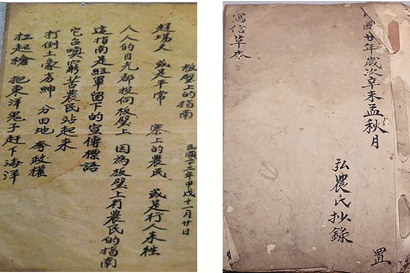 板壁上的指南
民國二十三年甲戌十一月廿日
趕場天 或是平常 寨上的農民 或是行人來往
人人的目光都投向板壁上 因為板壁上有農民的指南
這指南是紅軍留下的宣傳標語
它召喚窮苦農民站起來
打倒土豪劣紳 分田地 奪政權
扛起槍 把東洋鬼子趕下海洋
國廿年歲次辛未孟秋月
弘農氏抄錄
置
寫信草本